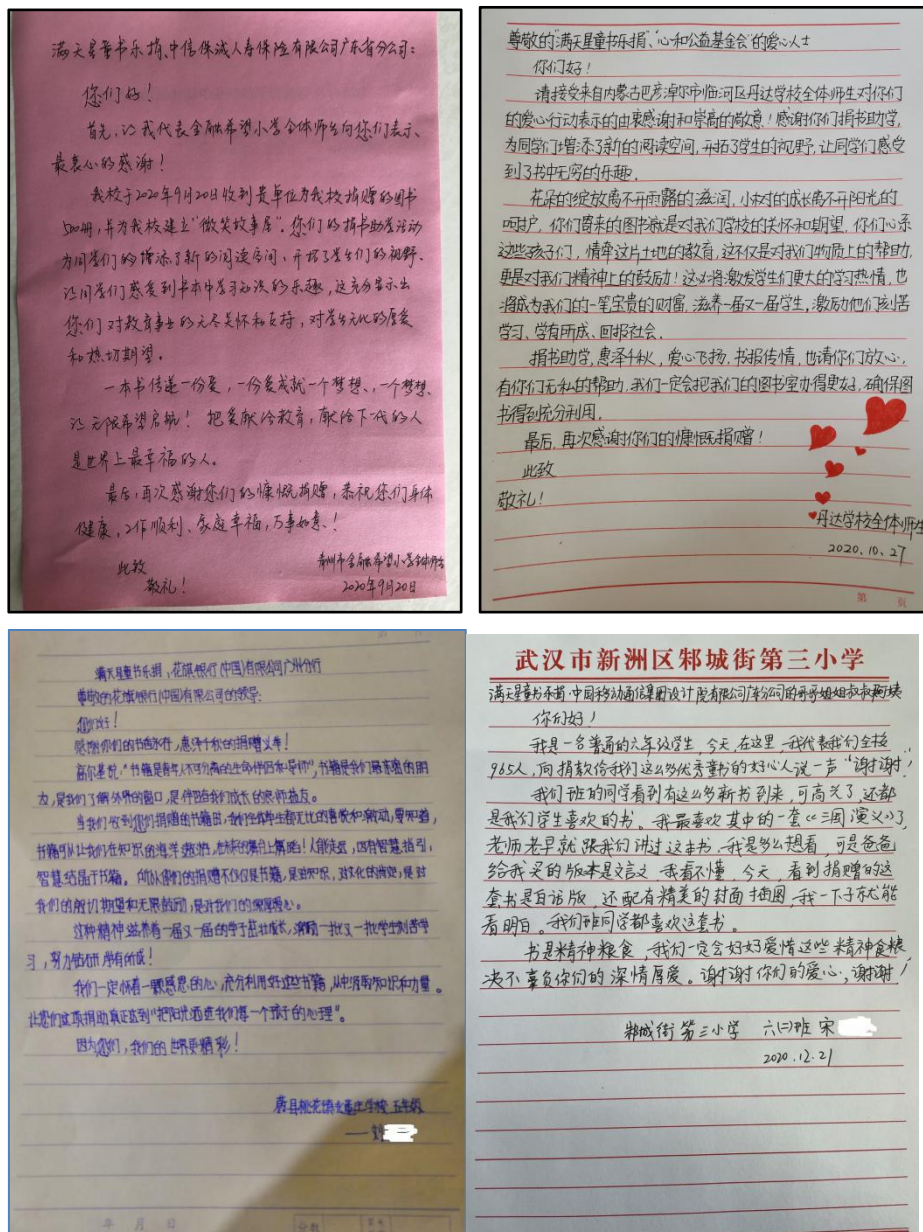 满天星童书乐捐、中信保诚人寿保险有限公司广东省分公司：
您们好！
首先，让我代表金融希望小学全体师生向您们表示
最衷心的感谢！
我校于2020年9月20日收到贵单位为我校捐赠的图书
500册，并为我校建立“微笑故事屋”。您们的捐书助学活动
为同学们的增添了新的阅读空间，开拓了学生们的视野、
让同学们感受到书本中学习知识的乐趣，这充分显示出
您们对教育事业的无尽关怀和支持，对学生无比的厚爱
和热切期望。
一本书传递一份爱，一份爱成就一个梦想、一个梦想、
让无限希望启航！把爱献给教育，献给下一代的人
是世界上最幸福的人。
最后，再次感谢您们的慷慨捐赠，恭祝您们身体
健康，工作顺利、家庭幸福，万事如意！
此致
敬礼！
青州市金融希望小学全体师生
2020年9月20日
尊敬的“满天星童书乐捐”、“心和公益基金会”的爱心人士
你们好！
请接受来自内蒙古巴彦淖尔市临河区丹达学校全体师生对你们
的爱心行动表示的由衷感谢和崇高的敬意！感谢你们捐书助学，
为同学们增添了新的阅读空间，开拓了学生的视野，让同学们感受
到了书中无穷的乐趣。
花朵的绽放离不开雨露的滋润，小树的成长离不开阳光的
呵护，你们寄来的图书就是对我们学校的关怀和期望，你们心系
这些孩子们，情牵这片土地的教育，这不仅是对我们物质上的帮助，
更是对我们精神上的鼓励！这必将激发学生们更大的学习热情，也
将成为我们的一笔宝贵的财富，滋养一届又一届学生，激励他们刻苦
学习、学有所成、回报社会。
捐书助学，惠泽千秋，爱心飞扬，书报传情，也请你们放心，
有你们无私的帮助，我们一定会把我们的图书室办得更好，确保图
书得到充分利用。
最后，再次感谢你们的慷慨捐赠！
此致
敬礼！
丹达学校全体师生
2020.10.27
第 页
满天星童书乐捐，花旗银行(中国)有限公司广州分行
尊敬的花旗银行(中国)有限公司的领导：
您们好！
感谢你们的书香永存，惠泽千秋的捐赠义举！
高尔基说，“书籍是青年人不可分离的生命伴侣和导师”，书籍是我们最亲密的朋
友，是我们了解外界的窗口，是伴随我们成长的良师益友。
当我们收到您们捐赠的书籍时，我们全体学生都无比的喜悦和激动，要知道，
书籍可以让我们在知识的海洋遨游，在未来的舞台上舞蹈！人能走远，因有智慧指引，
智慧结晶于书籍。所以你们的捐赠不仅仅是书籍，是对知识，对文化的尊重；是对
我们的殷切期望和无限鼓励；是对我们的深厚爱心。
这种精神滋养着一届又一届的学子茁壮成长，激励一批又一批学生刻苦学
习，努力钻研，学有所成！
我们一定怀着一颗感恩的心，充分利用好这些书籍，从中汲取知识和力量。
让您们这项捐助真正达到“把阳光洒进我们每一个孩子的心理”。
因为您们，我们的世界更精彩！
蔚县桃花镇 学校 五年级
——刘
年 月 日
武汉市新洲区邾城街第三小学
满天星童书乐捐·中国移动通信集团设计院有限公司广东分公司的哥哥姐姐叔叔阿姨
你们好！
我是一名普通的六年级学生，今天，在这里，我代表我们全校
965人，向捐款给我们这么多优秀童书的好心人说一声“谢谢！
我们班的同学看到有这么多新书到来，可高兴了，还都
是我们学生喜欢的书。我最喜欢其中的一套《三国演义》了，
老师老早就跟我们讲过这本书，我是多么想看，可是爸爸
给我买的版本是文言文，我看不懂，今天，看到捐赠的这
套书是白话版，还配有精美的封面插图，我一下子就能
看明白。我们班同学都喜欢这套书。
书是精神粮食，我们一定会好好爱惜这些精神食粮，
决不辜负你们的深情厚爱。谢谢你们的爱心，谢谢！
邾城街第三小学 六(二)班 宋
2020.12.21